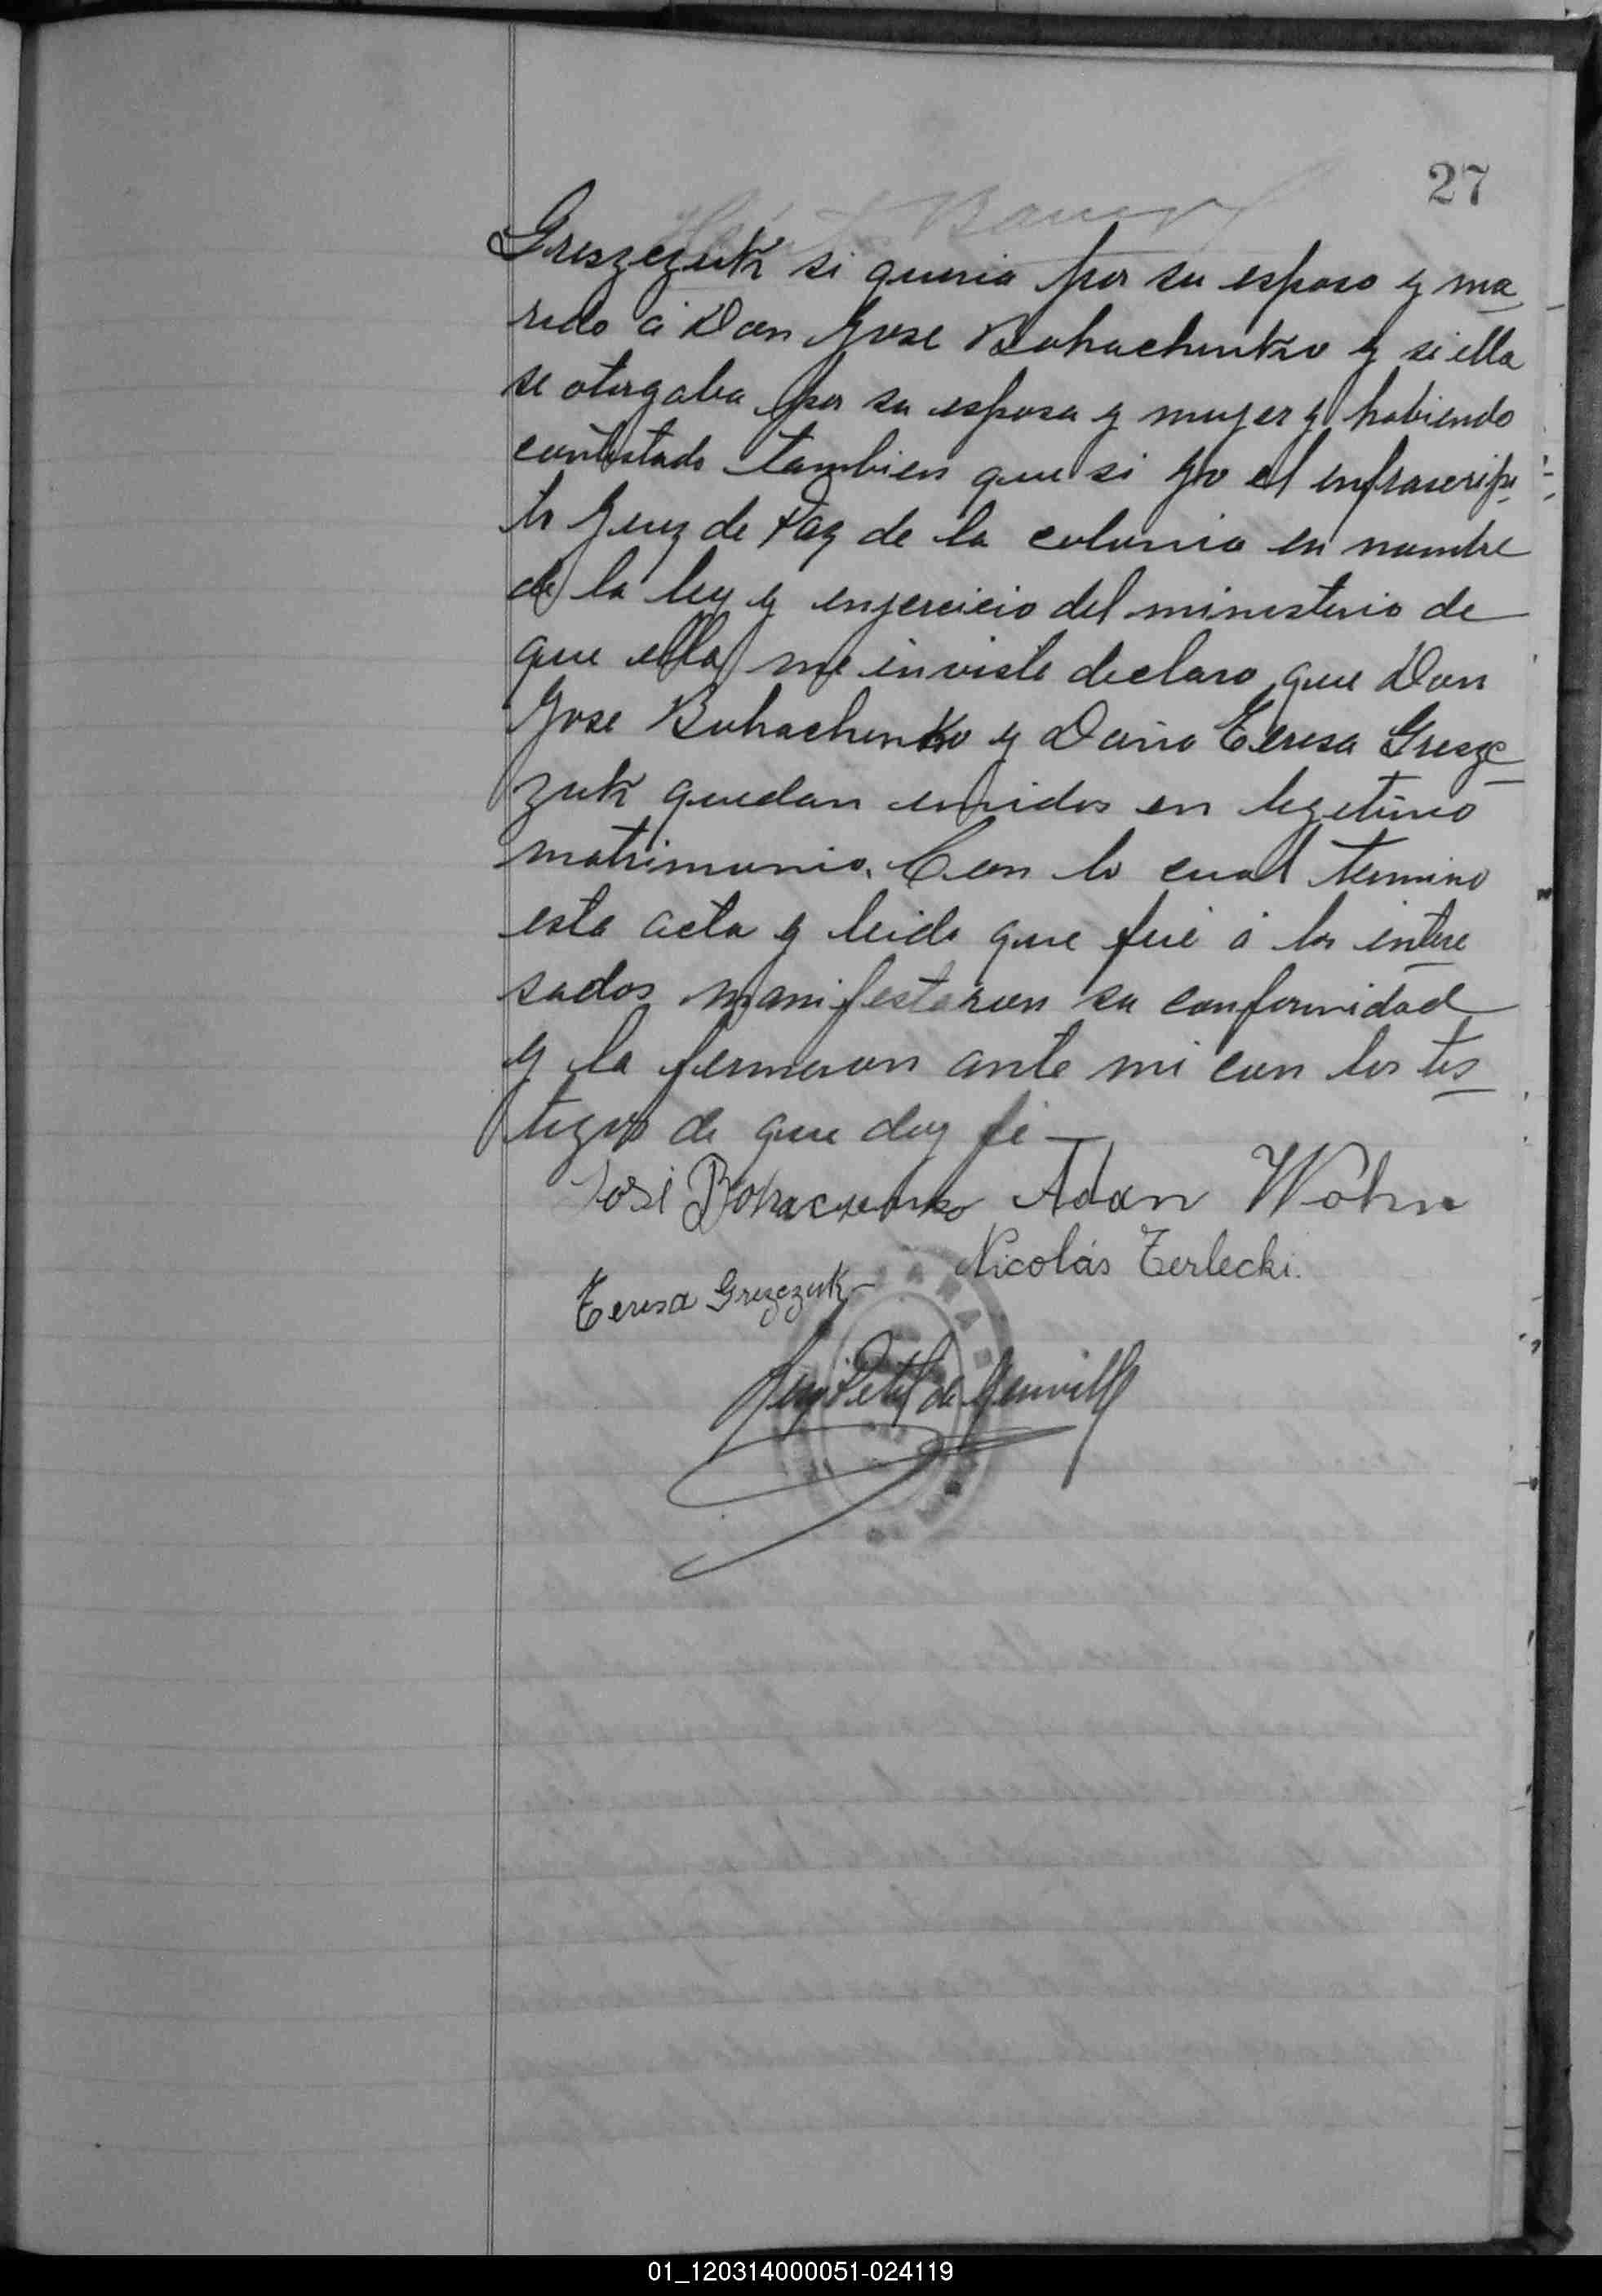 27
Greszezuk si queria por su esposo y ma
rido á Don Jose Bohachenko y si ella
se otorgaba por su esposa y mujer y habiendo
contestado tambien que si yo el infrascrip
to Juez de Paz de la colonia en nombre
de la ley y enjercicio del ministerio de
que ella me inviste declaro que Don
Jose Bohachenko y Doña Teresa Gresze
zuk quedan unidos en legitimo
matrimonio. Con lo cual termino
esta acta y leida que fué á los intere
sados manifestaron su conformidad
y la firmaron ante mi con los tes
tigos de que doy fé
José Bohaczenko Adan Wohn
Nicolás Terlecki.
Teresa Greszczuk
Petit de
01_120314000051-024119